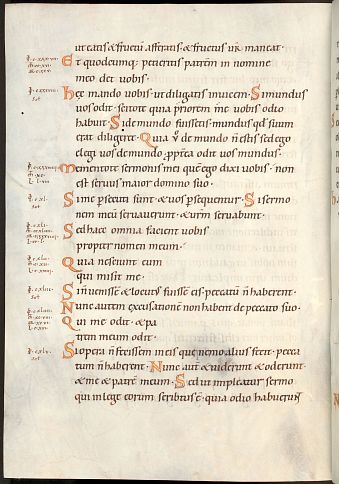 ut eatis & fructũ afferatis · & fructus ur̃ maneat ·
Et quodcumq; petieritis patrẽm in nomine
meo det vobis ·
Hęc mando vobis · ut diligatis inuicem · Si mundus
vos odit · scitote quia priorem me vobis odio
habuit · Si de mundo fuissetis · mundus qd̃ suum
erat diligeret · Quia v̊ de mundo ñ estis sed ego
elegi vos de mundo · propterea odit vos mundus ·
Mementote sermonis mei quẽ ego dixi vobis · non
est seruus maior domino suo ·
Si me persecuti sunt · & vos persequentur · Si sermo
nem meũ seruauerunt · & urm̃ seruabunt ·
Sed haec omnia facient vobis
propter nomen meum ·
Quia nesciunt eum
qui misit me ·
Si ñ venissẽ & locutus fuissẽ eis · peccatũ ñ haberent ·
Nunc autem excusationẽ non habent de peccato suo ·
Qui me odit · & pa
trem meum odit ·
Si opera ñ fecissem in eis quę nemo alius fecit · pecca
tum ñ haberent · Nunc aut̃ & viderunt & oderunt ·
& me & patrẽ meum · Sed ut impleatur sermo
qui in lege eorum scribtus ẽ · quia odio habuerunt